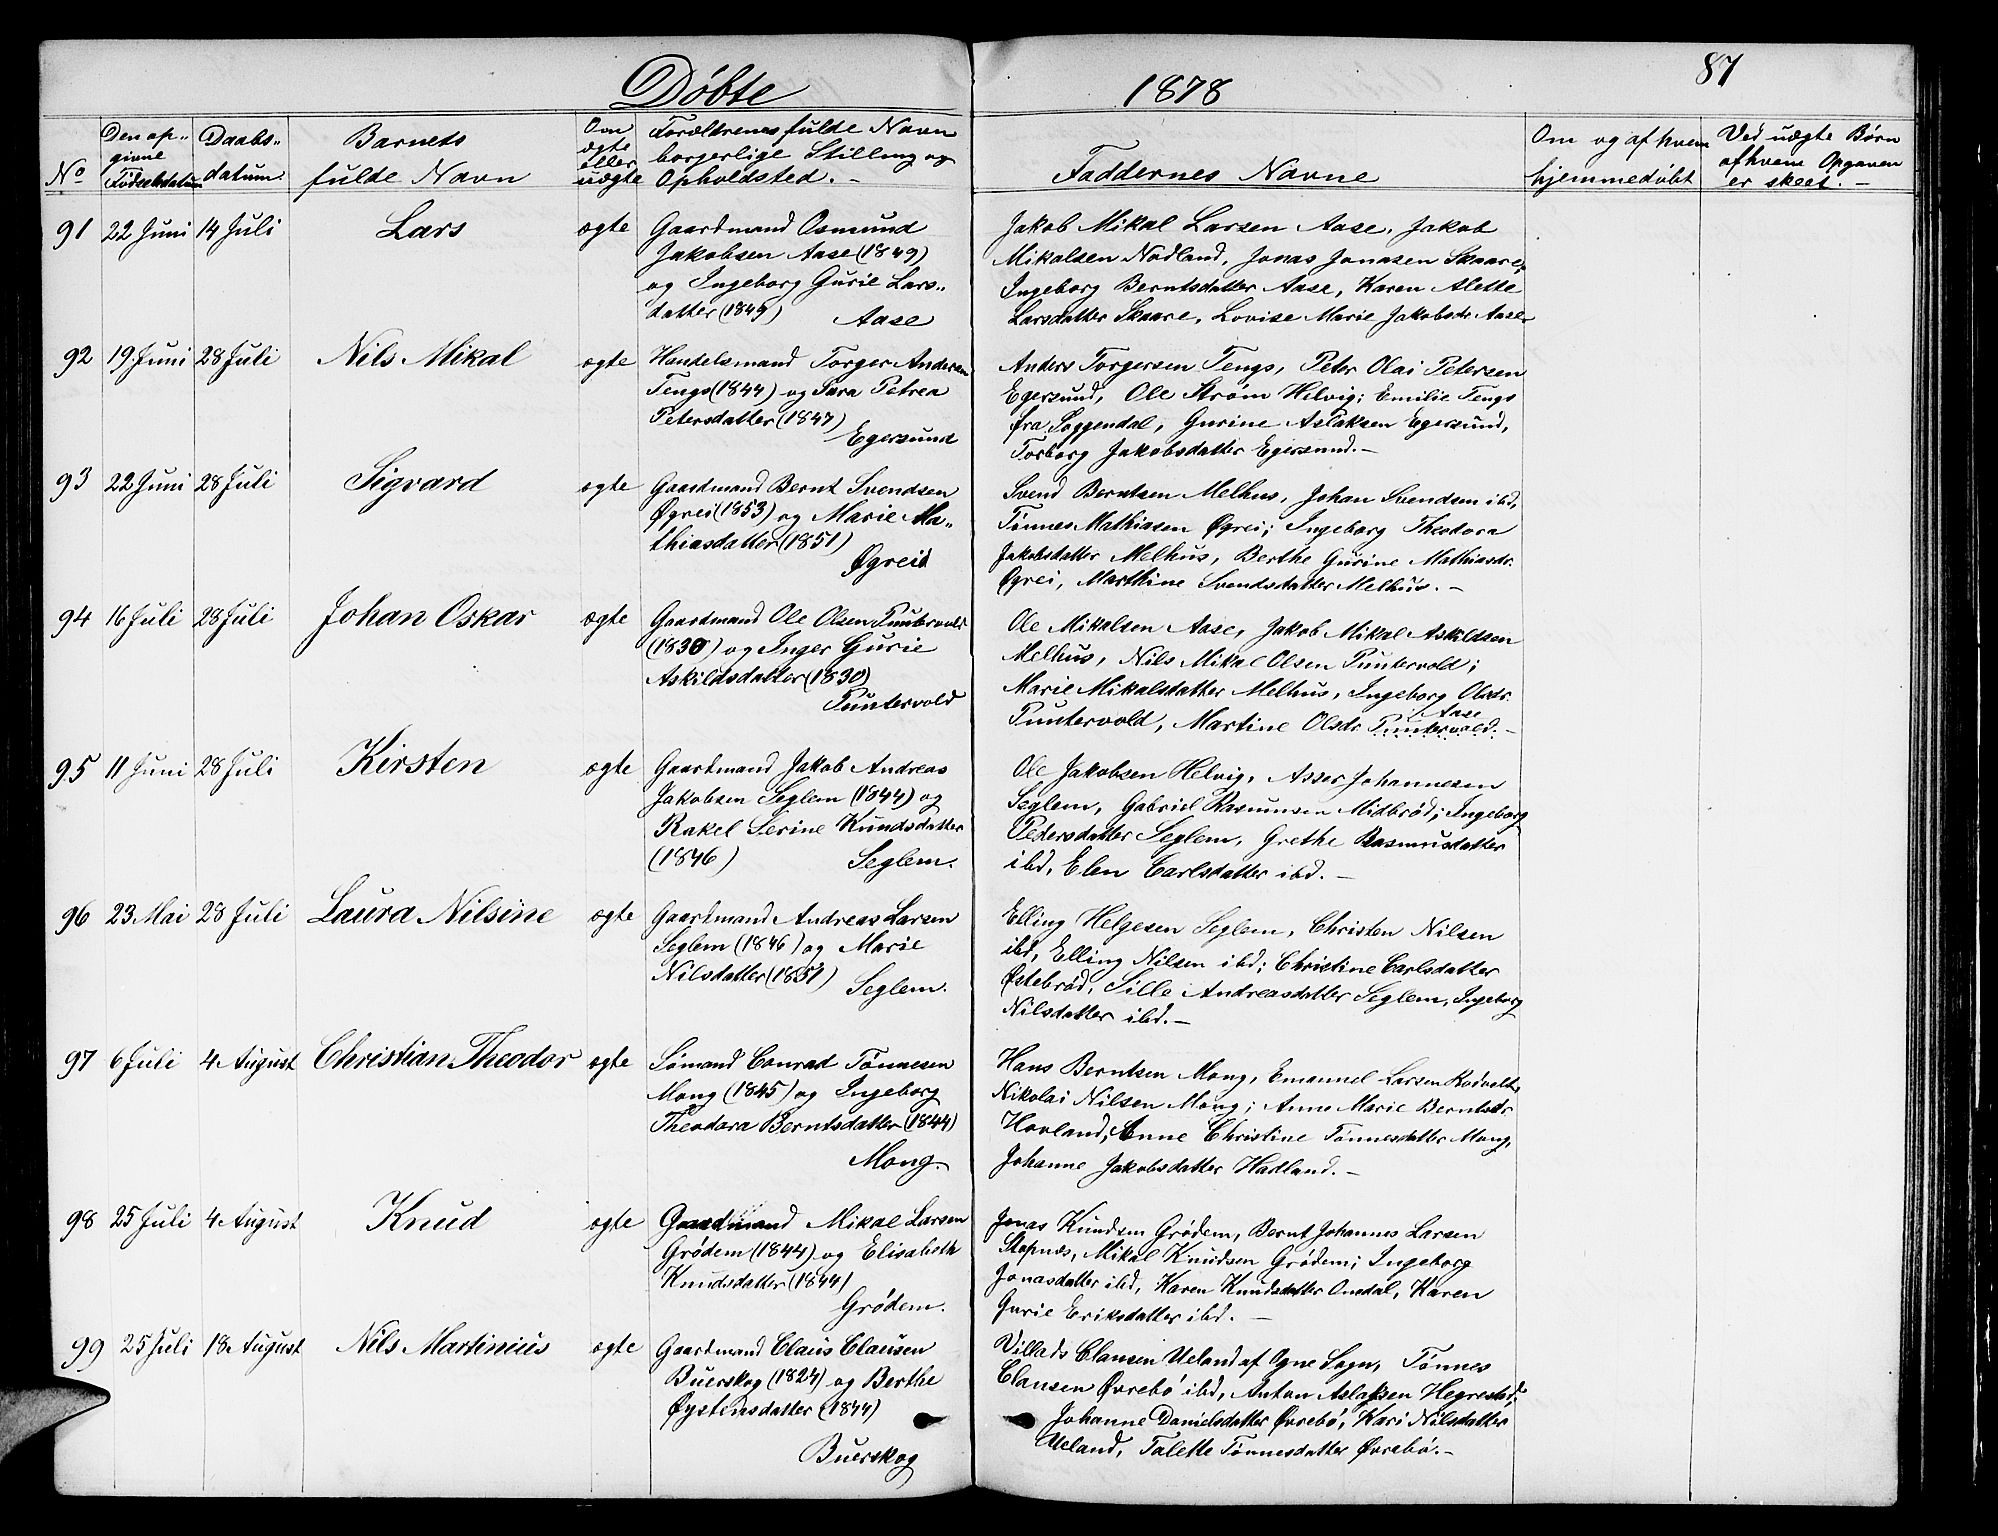 87
Døbte 1878
No
Den op-
givne
Fødselsdatum
Daabs-
datum
Barnets
fulde Navn
Om
ægte
eller
uægte
Forældrenes fulde Navn
borgerlige Stilling og
Opholdsted. –
Faddernes Navne
Om og af hvem
hjemmedøbt
Ved uægte Børn
af hvem Opgaven
er skeet. –
91 22 Juni 14 Juli Lars ægte
Gaardmand Osmund
Jakobsen Aase (1849)
og Ingeborg Gurie Lars-
datter (1849) Aase
Jakob Mikal Larsen Aase, Jakob
Mikalsen Nodland, Jonas Jonasen Skaare;
Ingeborg Berntsdatter Aase, Karen Alette
Larsdatter Skaare, Lovise Marie Jakobsdr Aase
92 19 Juni 28 Juli Nils Mikal ægte
Handelsmand Torger Andersen
Tengs (1844) og Sara Petrea
Petersdatter (1847)
Egersund
Anders Torgersen Tengs, Peter Olai Petersen
Egersund, Ole Strøm Helvig; Emilie Tengs
fra Soggendal, Gurine Aslaksen Egersund,
Torborg Jakobsdatter Egersund. –
93 22 Juni 28 Juli Sigvard ægte
Gaardmand Bernt Svendsen
Øgrei (1853) og Marie Ma-
thiasdatter (1851)
Øgrei
Svend Berntsen Melhus, Johan Svendsen ibd,
Tønnes Mathiasen Øgrei; Ingeborg Theodora
Jakobsdatter Melhus, Berthe Gurine Mathiasdr.
Øgrei, Marthine Svendsdatter Melhus. –
94 16 Juli 28 Juli Johan Oskar ægte
Gaardmand Ole Olsen Puntervold
(1830) og Inger Gurie
Askildsdatter (1830)
Puntervold
Ole Mikalsen Aase, Jakob Mikal Askildsen
Melhus, Nils Mikal Olsen Puntervold;
Marie Mikalsdatter Melhus, Ingeborg Olsdr.
Aase
Puntervold, Martine Olsdr Puntervold. –
95 11 Juni 28 Juli Kirsten ægte
Gaardmand Jakob Andreas
Jakobsen Seglem (1844) og
Rakel Serine Knudsdatter
(1846) Seglem.
Ole Jakobsen Helvig, Asser Johannesen
Seglem, Gabriel Rasmusen Midbrød; Ingeborg
Pedersdatter Seglem, Grethe Rasmusdatter
ibd, Elen Carlsdatter ibd. –
96 23 Mai 28 Juli Laura Nilsine ægte
Gaardmand Andreas Larsen
Seglem (1846) og Marie
Nilsdatter (1851) Seglem.
Elling Helgesen Seglem, Christen Nilsen
ibd, Elling Nilsen ibd; Christine Carlsdatter
Østebrød, Sille Andreasdatter Seglem, Ingeborg
Nilsdatter ibd. –
97 6 Juli 4 August Christian Theodor ægte
Sømand Conrad Tønnesen
Mong (1845) og Ingeborg
Theodora Berntsdatter (1844)
Mong.
Hans Berntsen Mong, Emanuel Larsen Rodvelt,
Nikolai Nilsen Mong; Anne Marie Berntsdr
Hovland, Anne Christine Tønnesdatter Mong,
Johanne Jakobsdatter Hadland. –
98 25 Juli 4 August Knud ægte
Gaardmand Mikal Larsen
Grødem (1844) og Elisabeth
Knudsdatter (1844)
Grødem.
Jonas Knudsen Grødem, Bernt Johannes Larsen
Stapnæs, Mikal Knudsen Grødem; Ingeborg
Jonasdatter ibd, Karen Knudsdatter Omdal, Karen
Gurie Eriksdatter ibd. –
99 25 Juli 18 August Nils Martinius ægte
Gaardmand Claus Clausen
Buerskog (1824) og Berthe
Øystensdatter (1844)
Buerskog
Villads Clausen Ueland af Ogne Sogn, Tønnes
Clausen Øvrebø ibd, Anton Aslaksen Hegrestad;
Johanne Danielsdatter Øvrebø, Kari Nilsdatter
Ueland, Talette Tønnesdatter Øvrebø. –